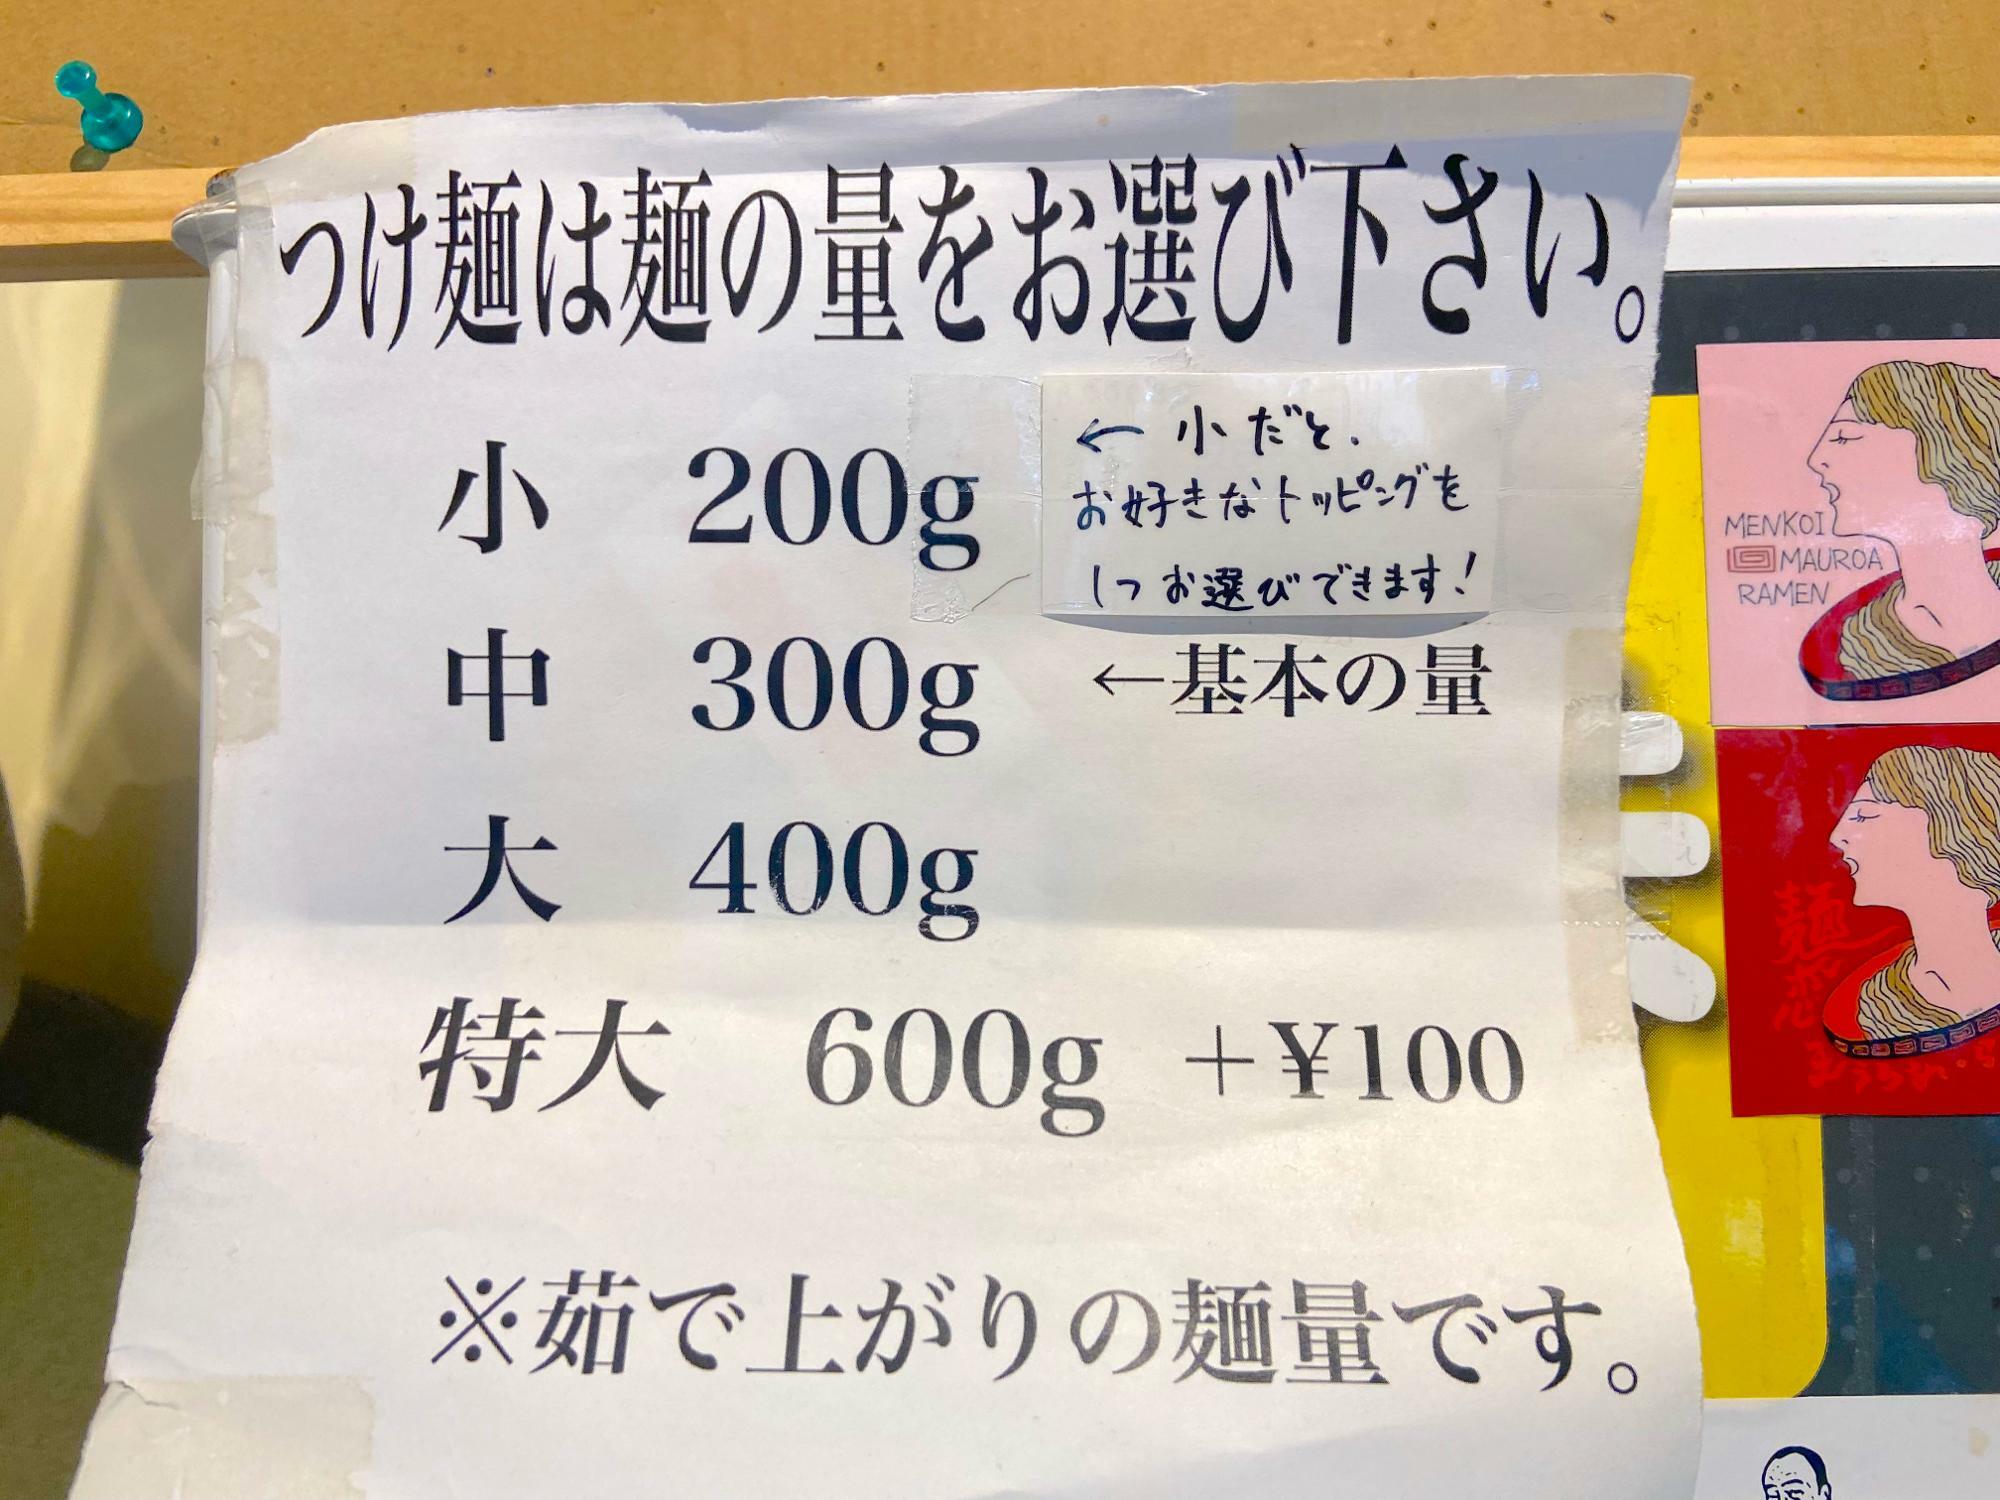 つけ麺は麺の量をお選び下さい。
小 200g
← 小だと、
お好きなトッピングを
1つお選びできます!
中 300g ←基本の量
大 400g
特大 600g +¥100
※茹で上がりの麺量です。
MENKOI
MAUROA
RAMEN
麺恋